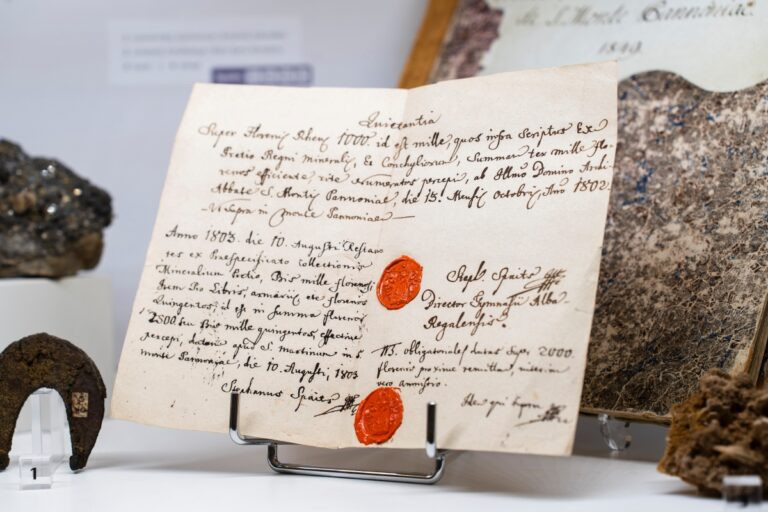 de S. Monte Pannoniae
1849.
Quietantia
Super Florenis Rhen 1000. id est mille, quos infra Scriptus Ex
Pretio Regni mineralis, & Conchyliorum, Summam ter mille Flo-
renos efficiente, rite numeratos percepi, ab Illmo Domino Archi
Abbate S. Montis Pannoniae, die 15. Mensis Octobris, Ano 1802.
Ut Supra in monte Pannoniae
Anno 1803. die 10. Augusti Restan
tes ex Praespecificato collectionis
Mineralium Pretio, Bis mille florenos
Item Pro Libris, armariis, etc florenos
Quingentos; id est in Summa florenos
2500 seu Bis mille quingentos effective
percepi, datum apud S. Martinum in S.
monte Pannoniae, die 10. Augusti, 1803
Stephanus Spaits
Steph Spaits
Director Gymnasii Alba
Regalensis.
NB. obligatoriales datas Super 2000.
florenis proxime remittam, interim
vero
Idem qui Supra
1